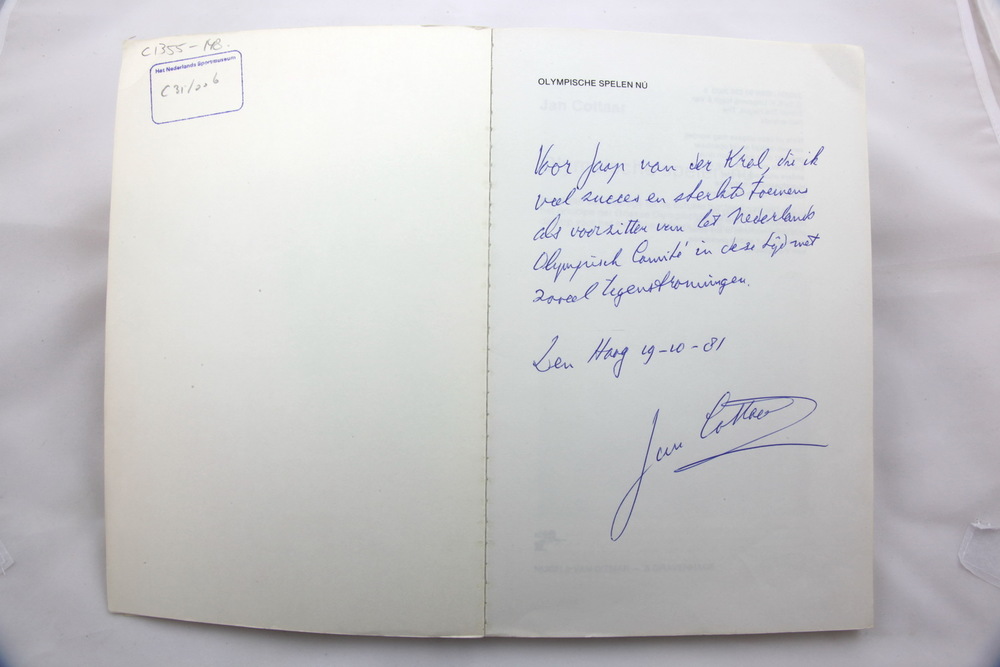 C1355-MB.
Het Nederlands Sportmuseum
C31/006
OLYMPISCHE SPELEN NÚ
Jan Cottaar
Voor Jaap van der Krol, die ik
veel succes en sterkte toewens
als voorzitter van het Nederlands
Olympisch Comité in deze tijd met
zoveel tegenstromingen.
Den Haag 19-10-81
Jan Cottaar